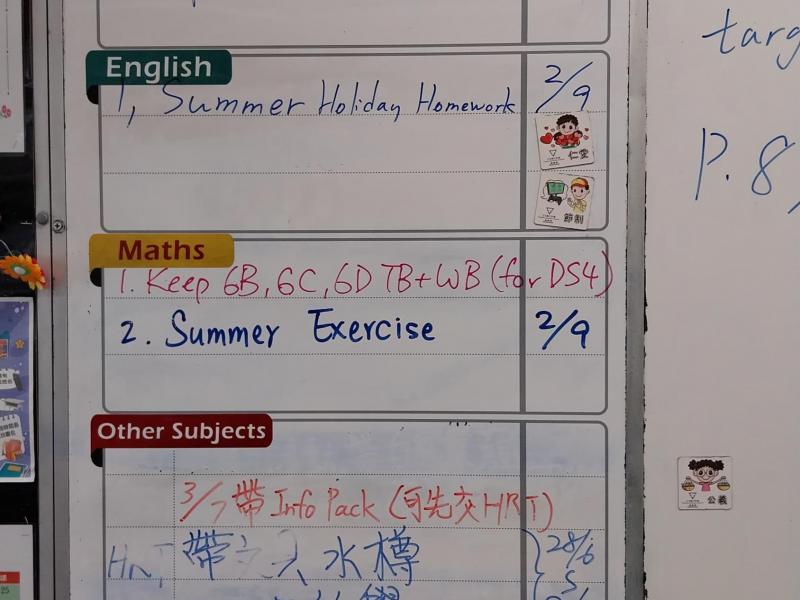 English
1, Summer Holiday Homework 2/9
仁愛
節制
Maths
1. Keep 6B, 6C, 6D TB+WB (for DS4)
2. Summer Exercise 2/9
Other Subjects
3/7 帶 Info Pack (可先交HRT)
HRT 帶 水樽 28/6
targ
P. 8,
公義